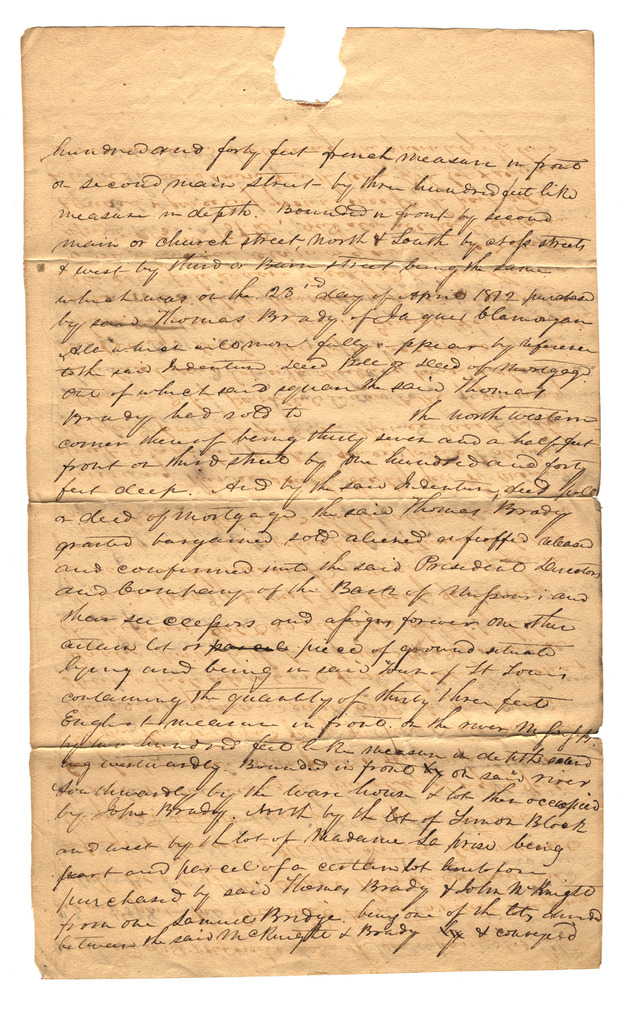 hundred and forty feet french measure in front
on second main street by three hundred feet like
measure in depth. Bounded in front by second
main or church street, North & South by cross streets
& west by third or Barn street being the same
which was on the 23rd day of April 1812 purchased
by said Thomas Brady of Jaques Clamorgan
All which will more fully appear by reference
to the said Indenture deed Poll or deed of Mortgage.
out of which said square the said Thomas
Brady had sold to the north western
corner thereof being thirty seven and a half feet
front on third street by one hundred and forty
feet deep. And by the said Indenture, deed poll
or deed of Mortgage the said Thomas Brady
granted bargained sold aliened enfeoffed released
and confirmed unto the said President Directors
and Company of the Bank of Missouri and
their successors and assigns forever one other
certain lot or parcel piece of ground situate
lying and being in said Town of St Louis
containing the quantity of thirty three feet
English measure in front on the river
by two hundred feet like measure in depth
westwardly. Bounded in front by on said river
Southwardly by the ware house & lot then occupied
by John Brady. North by the lot of Simon Block
and west by the lot of Madame La prise being
part and parcel of a certain lot
purchased by said Thomas Brady & John McKnight
from one Samuel Bridge. being one of the lots
between the said McKnight & Brady & conveyed